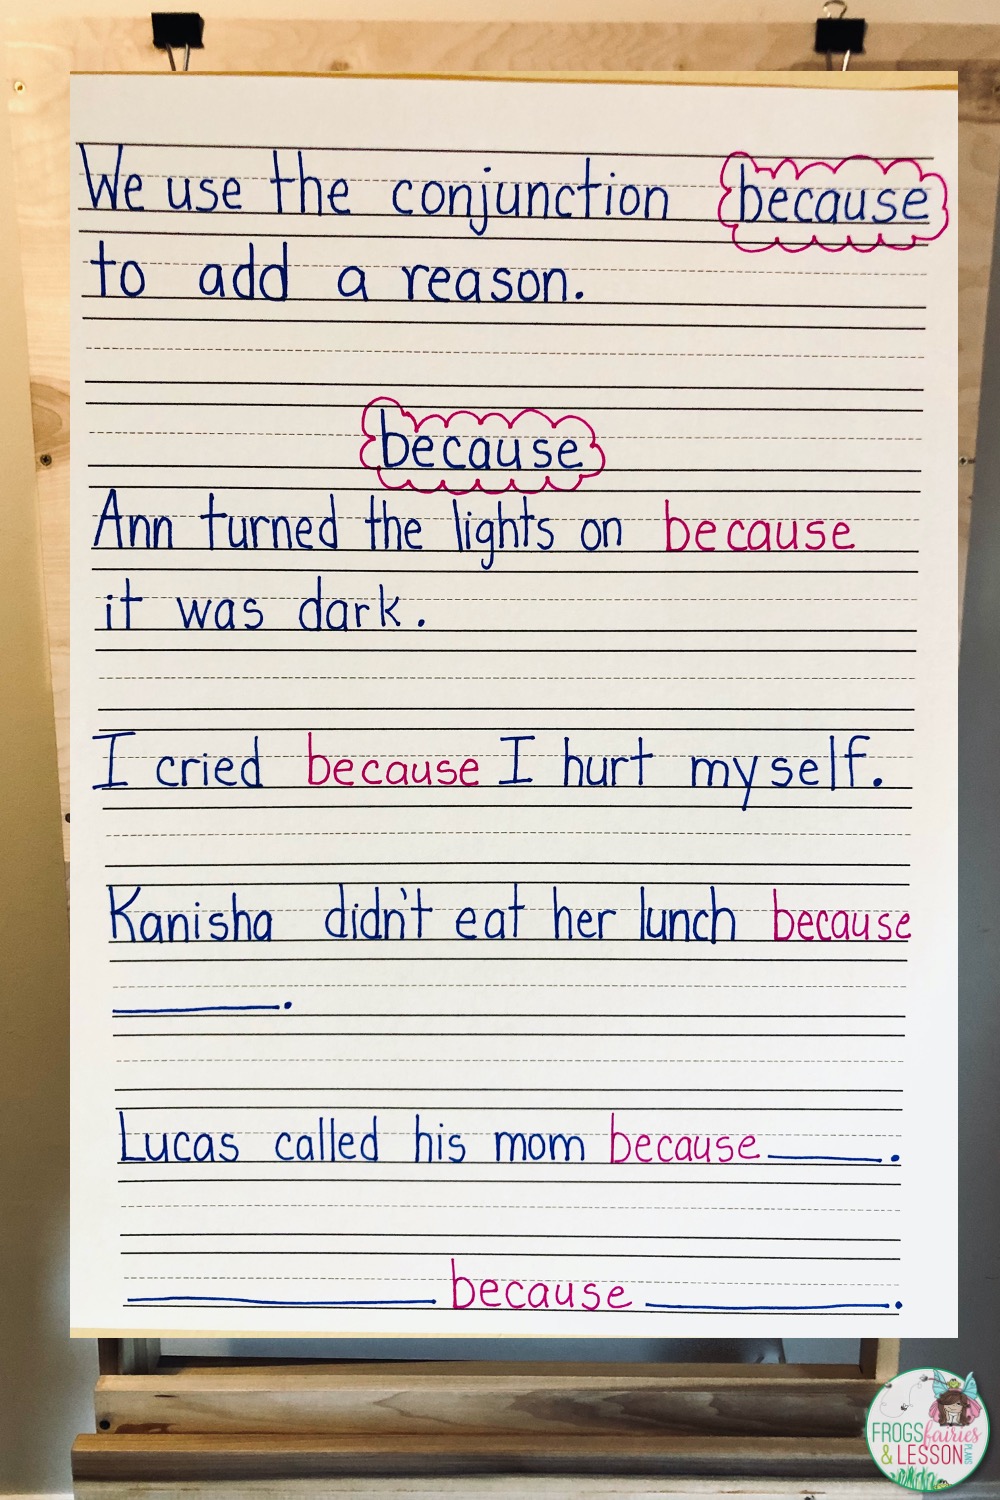 We use the conjunction because
to add a reason.
because
Ann turned the lights on because
it was dark.
I cried because I hurt myself.
Kanisha didn't eat her lunch because
______.
Lucas called his mom because ____.
__________ because ________.
FROGS fairies
& LESSON PLANS